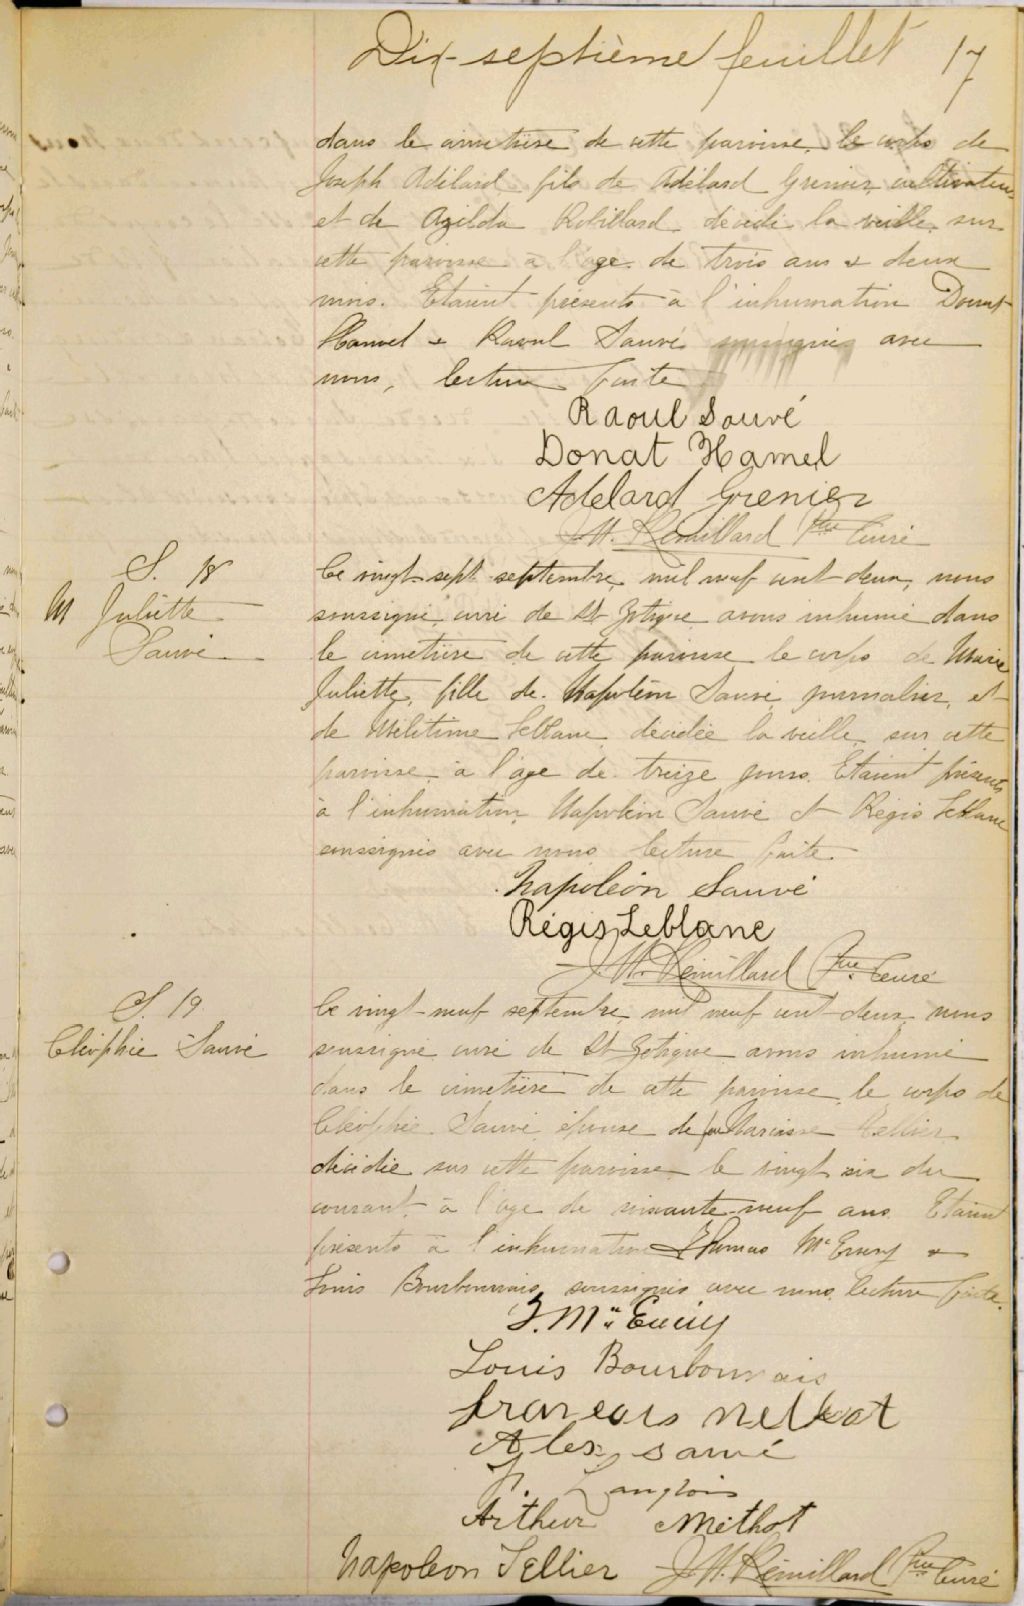 Dix-septième feuillet 17
dans le cimetière de cette paroisse, le corps de
Joseph Adélard, fils de Adélard Grenier, cultivateur
et de Azilda Robillard, décédé la veille, sur
cette paroisse à l'age de trois ans & deux
mois. Etaient présents à l'inhumation Donat
Hamel & Raoul Sauvé soussignés avec
nous, lecture faite
Raoul Sauvé
Donat Hamel
Adélard Grenier
J.W. Rémillard Ptre Curé
S. 18
M Juliette
Sauvé
Le vingt-sept septembre, mil neuf cent-deux, nous
soussigné, curé de St Zotique avons inhumé dans
le cimetière de cette paroisse le corps de Marie
Juliette, fille de Napoléon Sauvé, journalier, et
de Mélitime Leblanc, décédée la veille, sur cette
paroisse, à l'âge de treize jours. Etaient présents
à l'inhumation Napoléon Sauvé et Régis Leblanc
soussignés avec nous, lecture faite.
Napoléon Sauvé
Régis Leblanc
J.W. Rémillard Ptre Curé
S. 19
Cléophie Sauvé
Le vingt-neuf septembre, mil neuf cent-deux, nous
soussigné curé de St Zotique avons inhumé
dans le cimetière de cette paroisse, le corps de
Cléophie Sauvé, épouse de feu Narcisse Tellier
décédée sur cette paroisse le vingt six du
courant, à l'age de soixante-neuf ans. Etaient
présents à l'inhumation Thomas McEvery &
Louis Bourbonnais, soussignés avec nous, lecture faite.
Louis Bourbonnais
Alex sauvé
Langlois
Arthur Methot
Napoleon Tellier J.W. Rémillard Ptre Curé